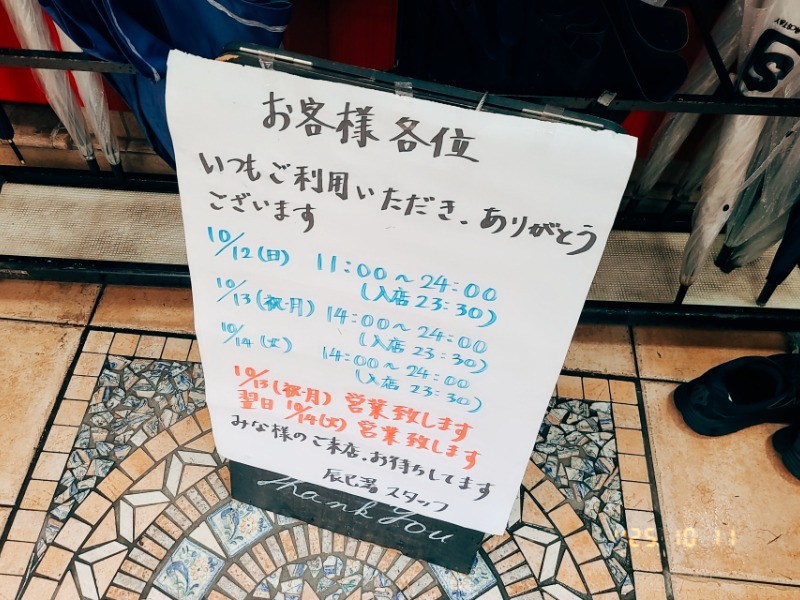 お客様各位
いつもご利用いただき、ありがとう
ございます
10/12(日) 11:00~24:00
(入店23:30)
10/13(祝・月) 14:00~24:00
(入店23:30)
10/14(火) 14:00~24:00
(入店23:30)
10/13(祝・月) 営業致します
翌日 10/14(火) 営業致します
みな様のご来店、お待ちしてます
辰巳湯 スタッフ
Thank You
'25 10 11